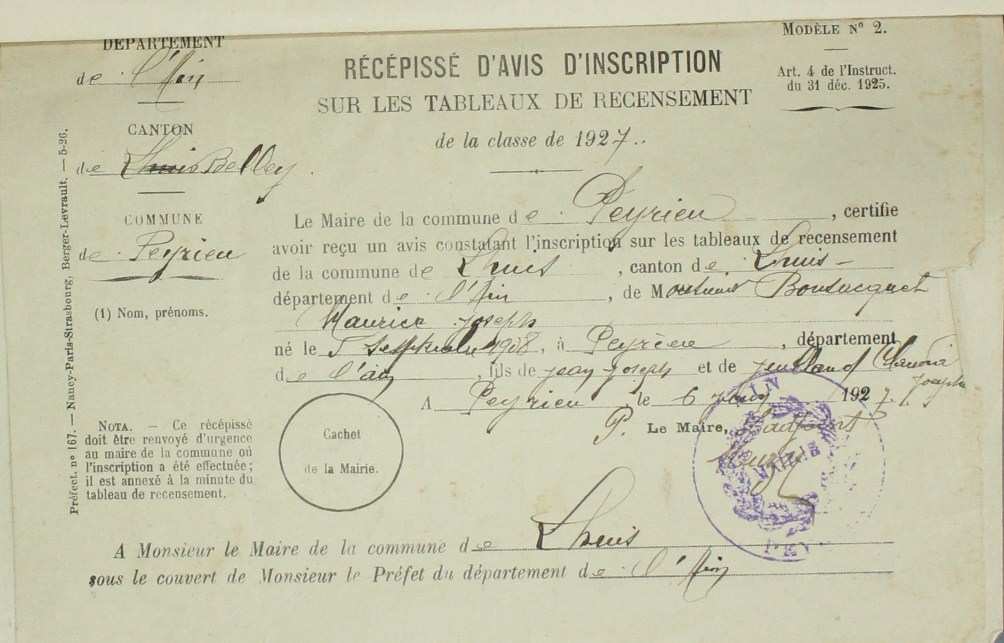 DÉPARTEMENT
de l'Ain
CANTON
de Lhuis Belley
COMMUNE
de Peyrieu
(1) Nom, prénoms.
NOTA. — Ce récépissé
doit être renvoyé d'urgence
au maire de la commune où
l'inscription a été effectuée;
il est annexé à la minute du
tableau de recensement.
Préfect. n° 167. — Nancy-Paris-Strasbourg, Berger-Levrault. — 5-26.
MODÈLE N° 2.
Art. 4 de l'Instruct.
du 31 déc. 1925.
RÉCÉPISSÉ D'AVIS D'INSCRIPTION
SUR LES TABLEAUX DE RECENSEMENT
de la classe de 1927.
Le Maire de la commune de Peyrieu, certifie
avoir reçu un avis constatant l'inscription sur les tableaux de recensement
de la commune de Lhuis, canton de Lhuis
département de l'Ain, de M
Maurice Joseph
né le 5 septembre 1908, à Peyrieu, département
de l'ain, fils de jean joseph et de
A Peyrieu le 6 1927.
P. Le Maire, L'adjoint
Cachet
de la Mairie.
AIN
MAIRIE
A Monsieur le Maire de la commune de Lhuis
sous le couvert de Monsieur le Préfet du département de l'Ain